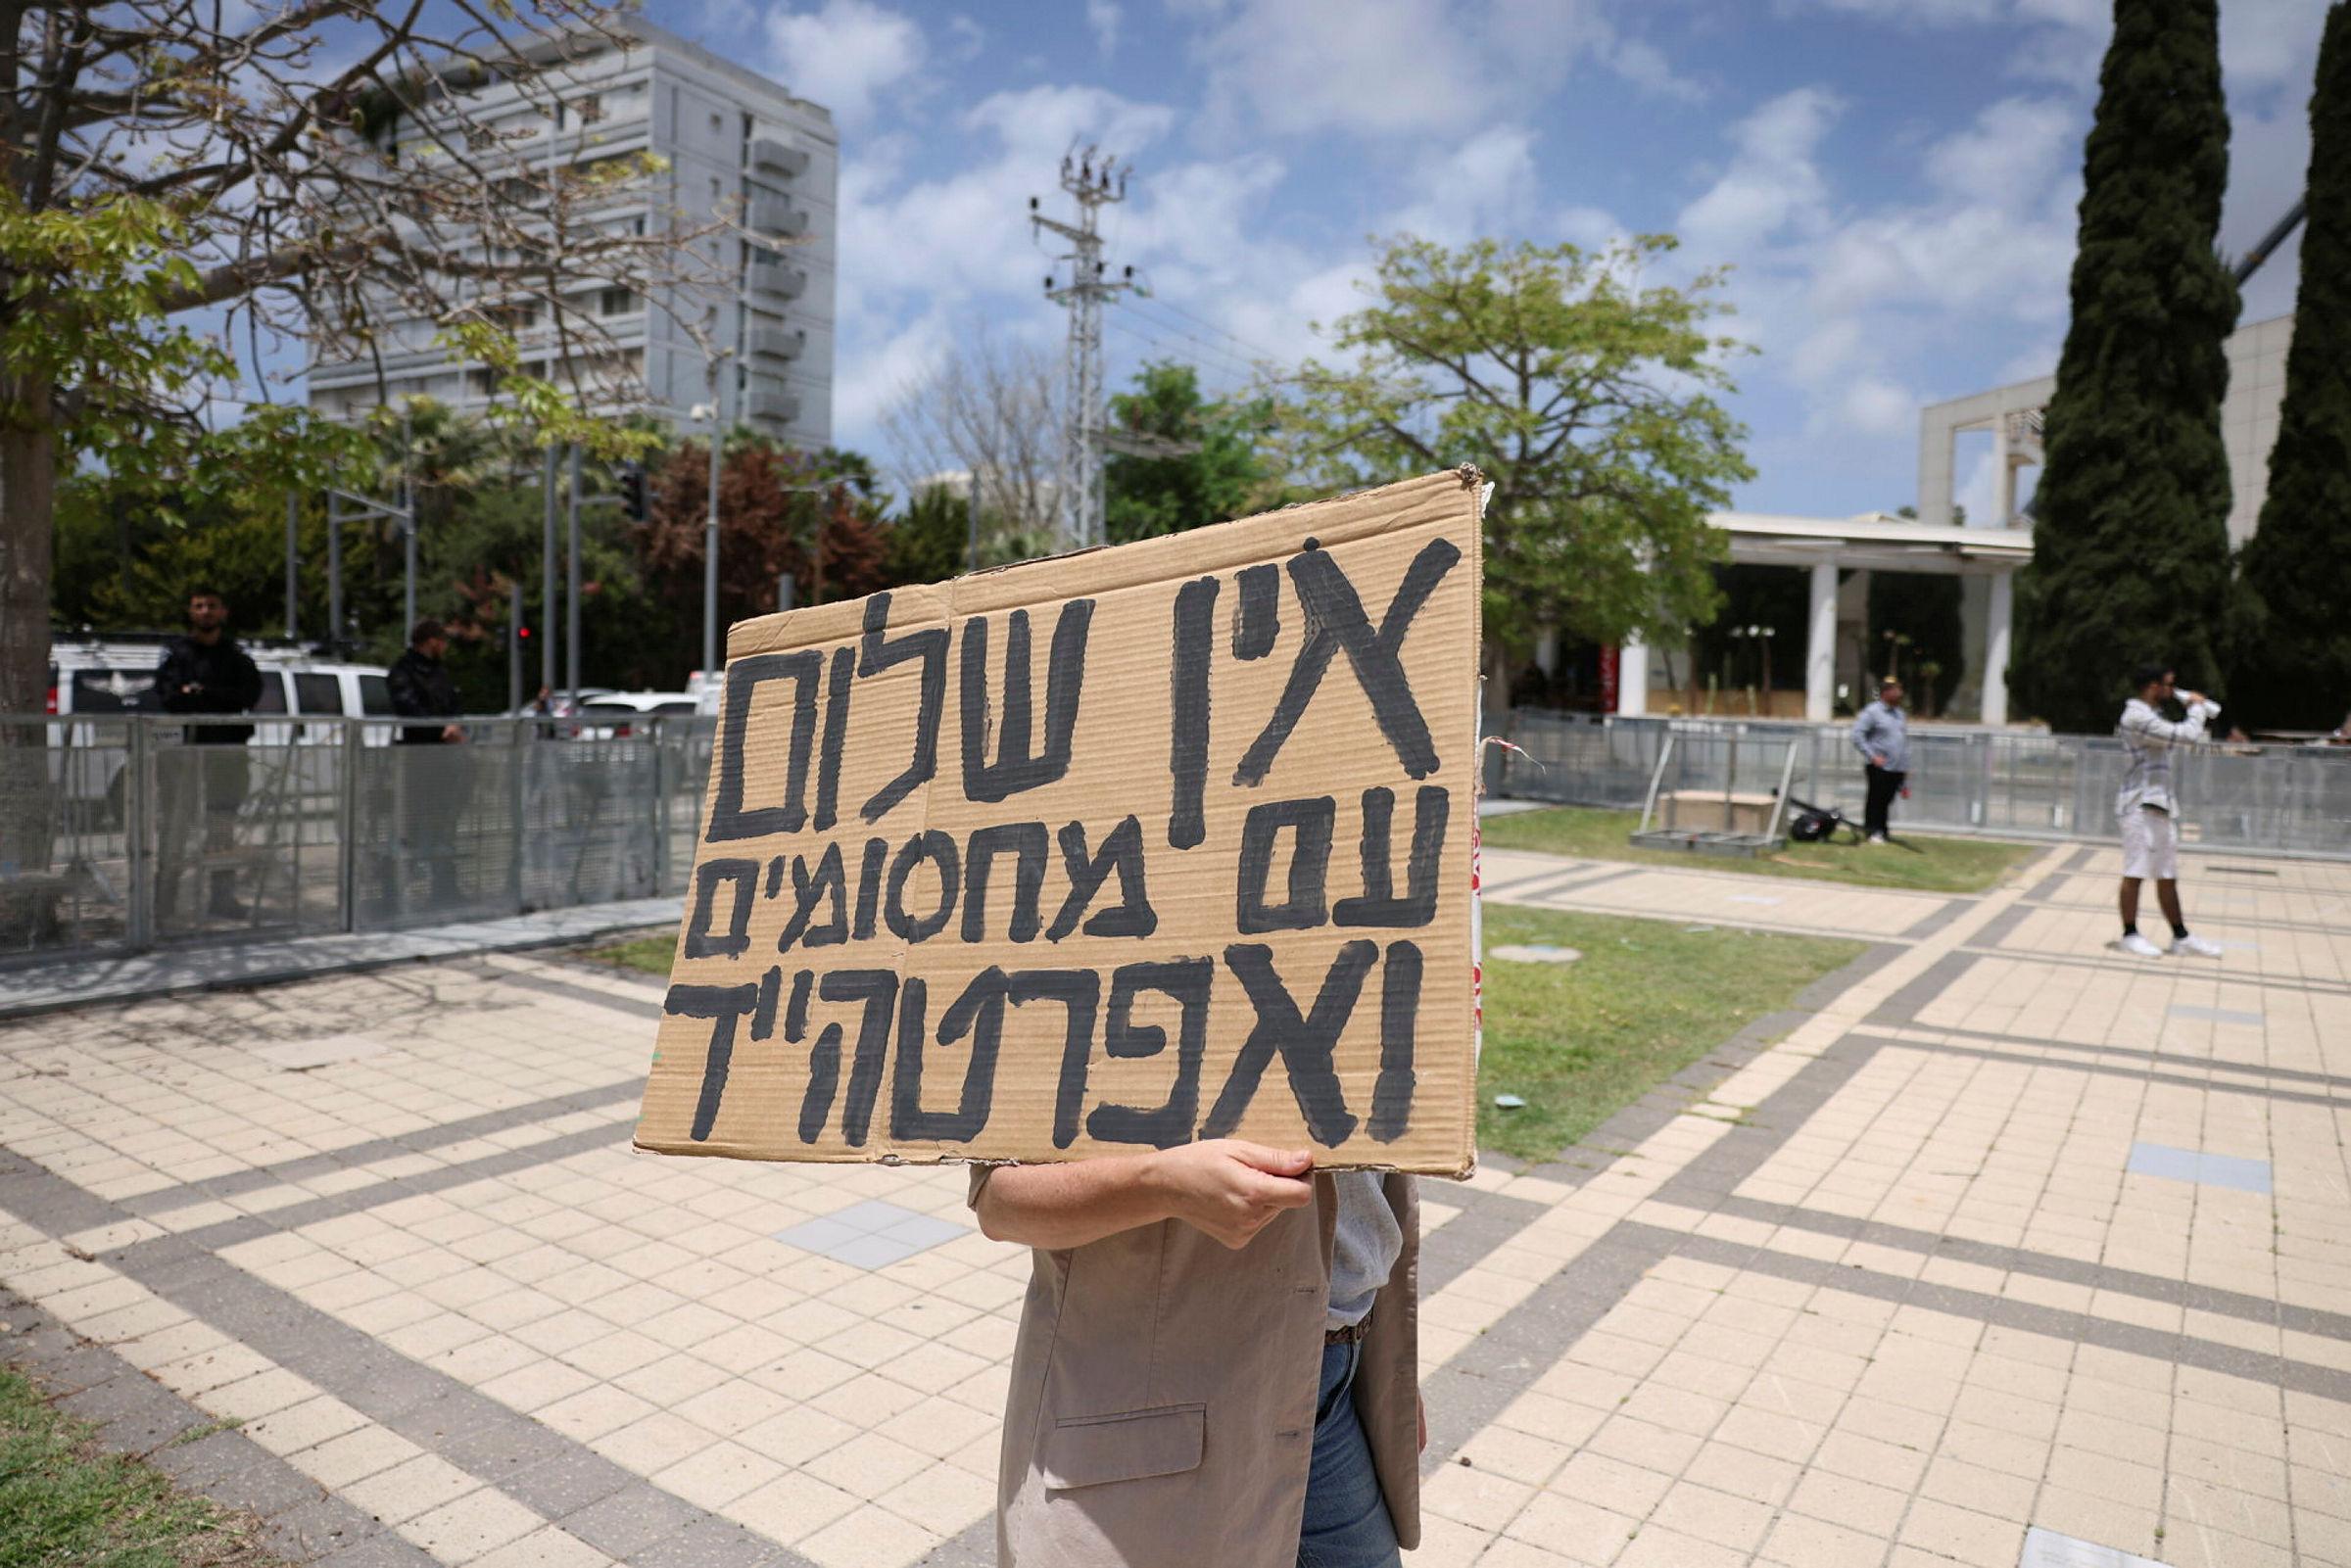 אין שלום
עם מחסומים
ואפרטהייד